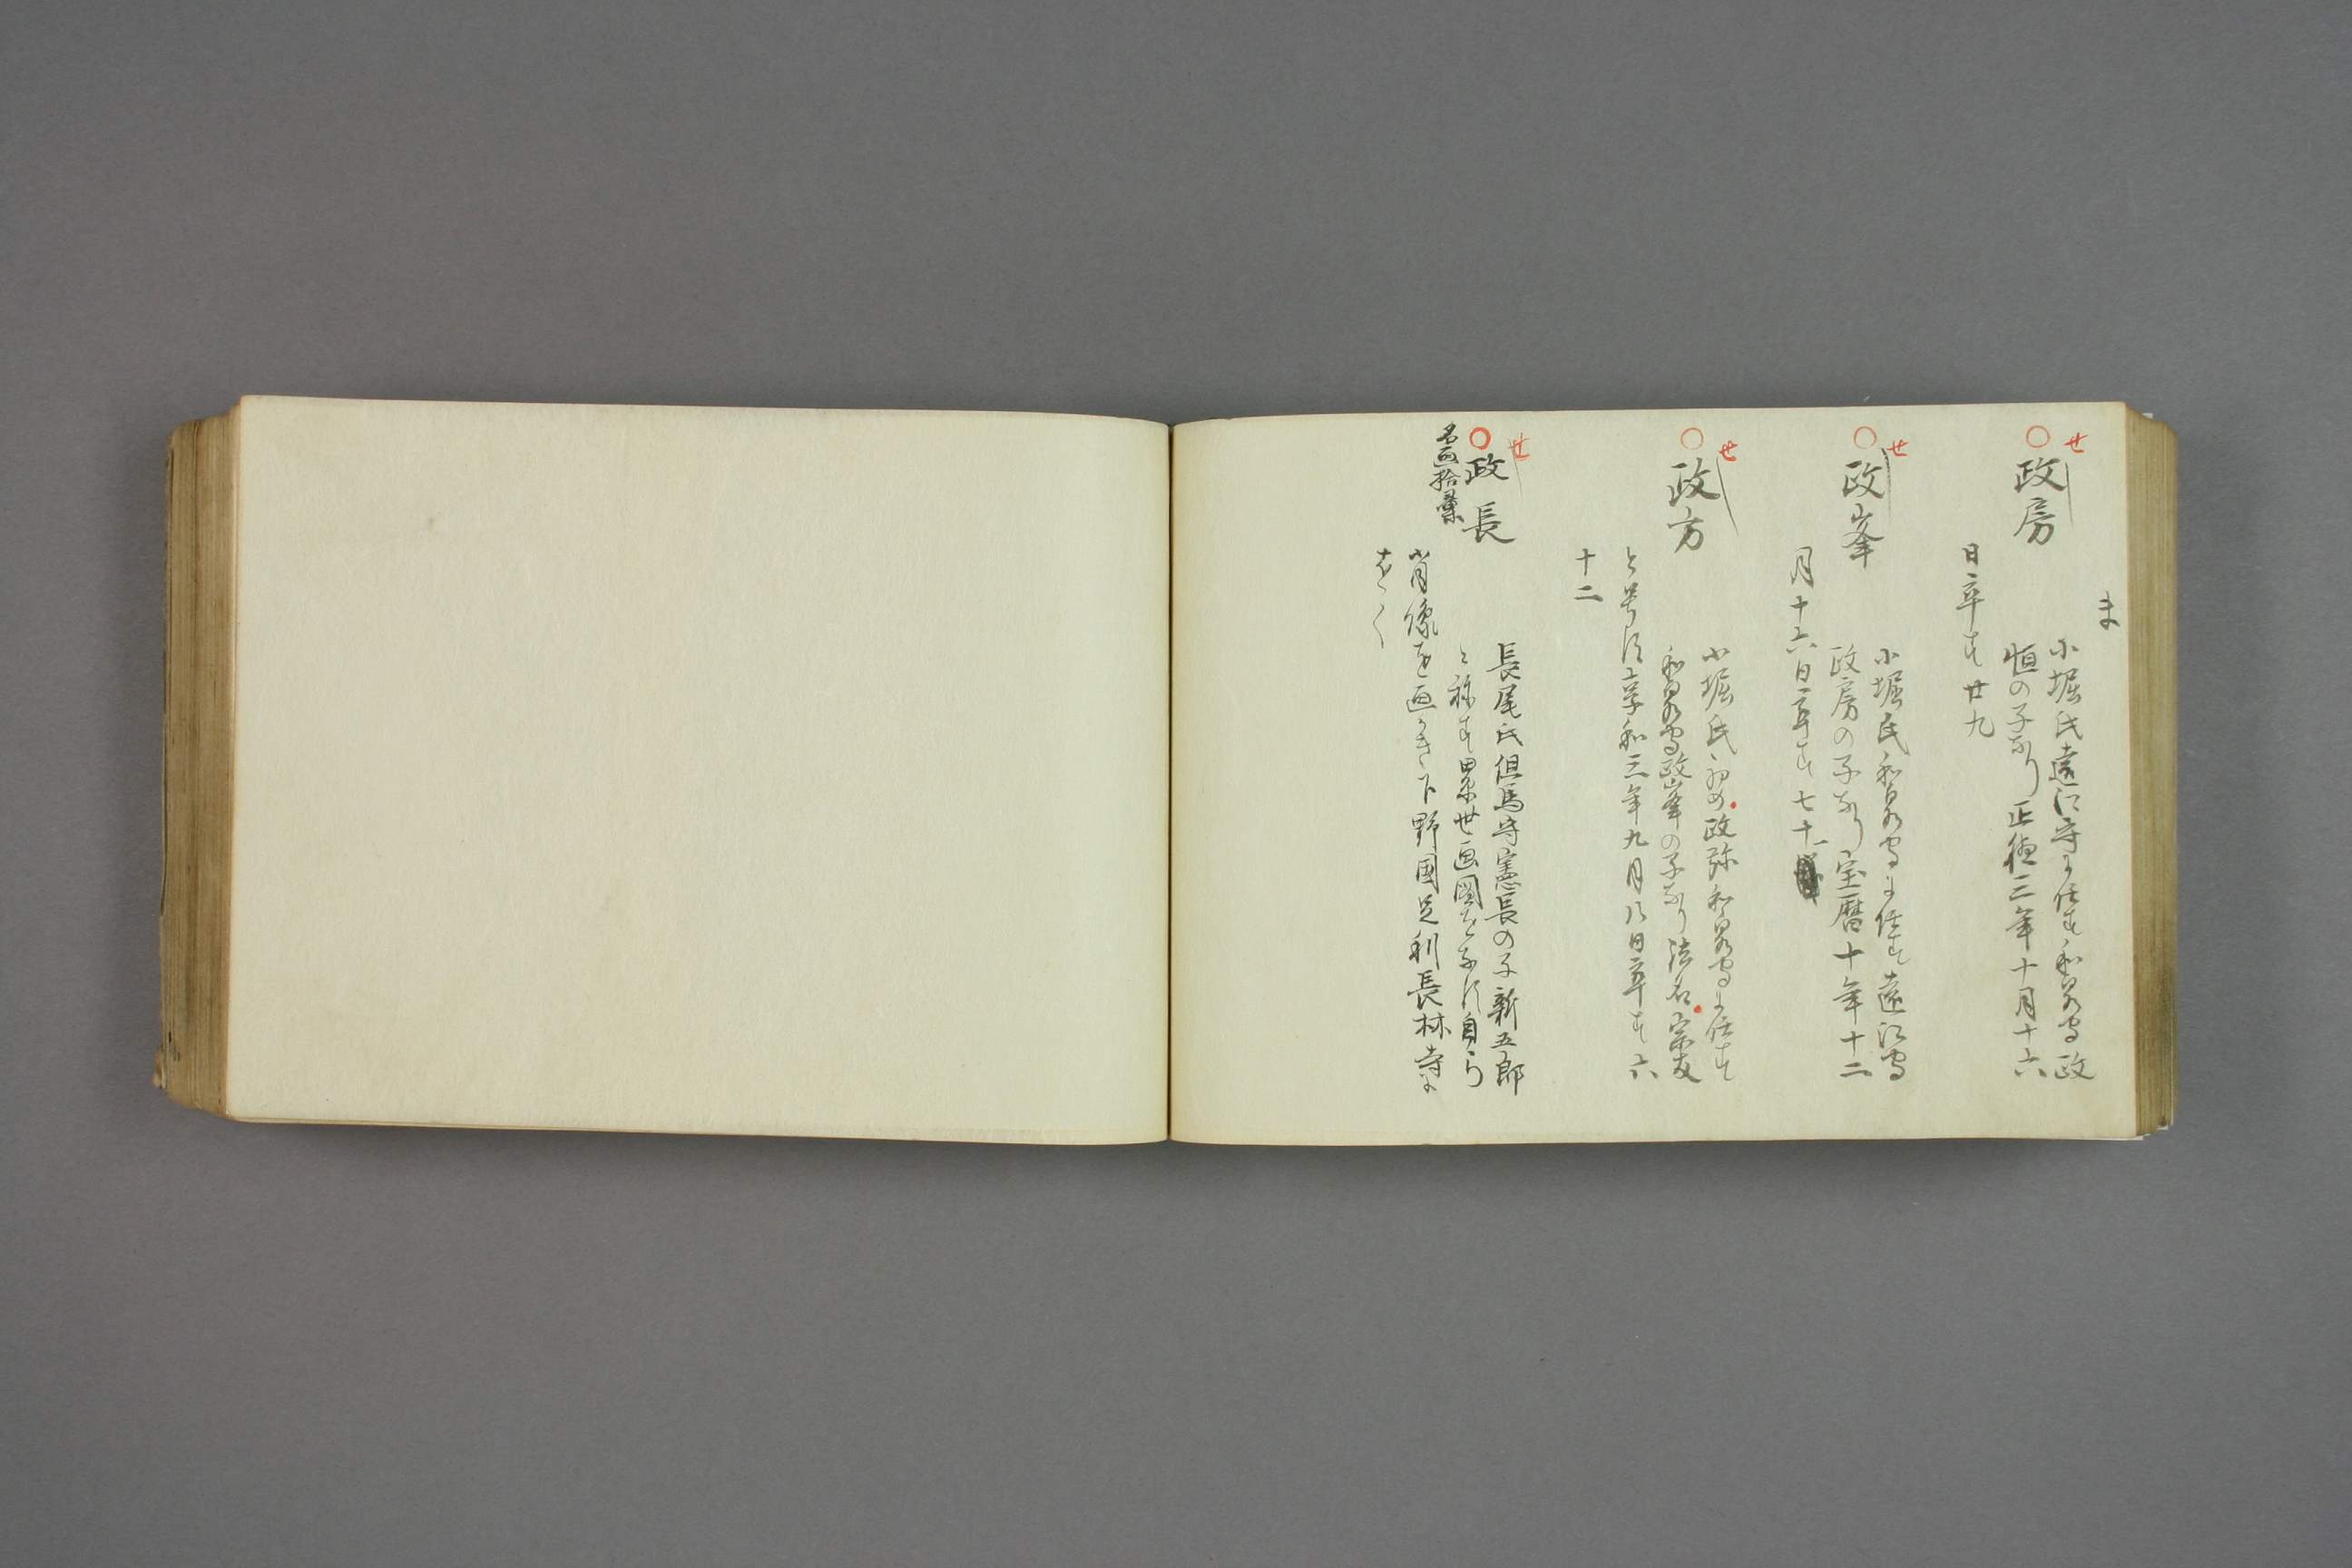 ま
せ
○政房
小堀氏遠江守に任す和泉守政
恒の子なり正徳三年十月十六
日卒す廿九
せ
○政峯
小堀氏和泉守に任す遠江守
政房の子なり宝暦十年十二
月十六日卒す七十一
せ
○政方
小堀氏初め政弥和泉守に任す
和泉守政峯の子なり法名宗友
と号す享和三年九月八日卒す六
十二
せ
○政長
名画拾彙
長尾氏但馬守憲長の子新五郎
と称す累世画図を子す自ら
肖像を画かき下野国足利長林寺に
をく